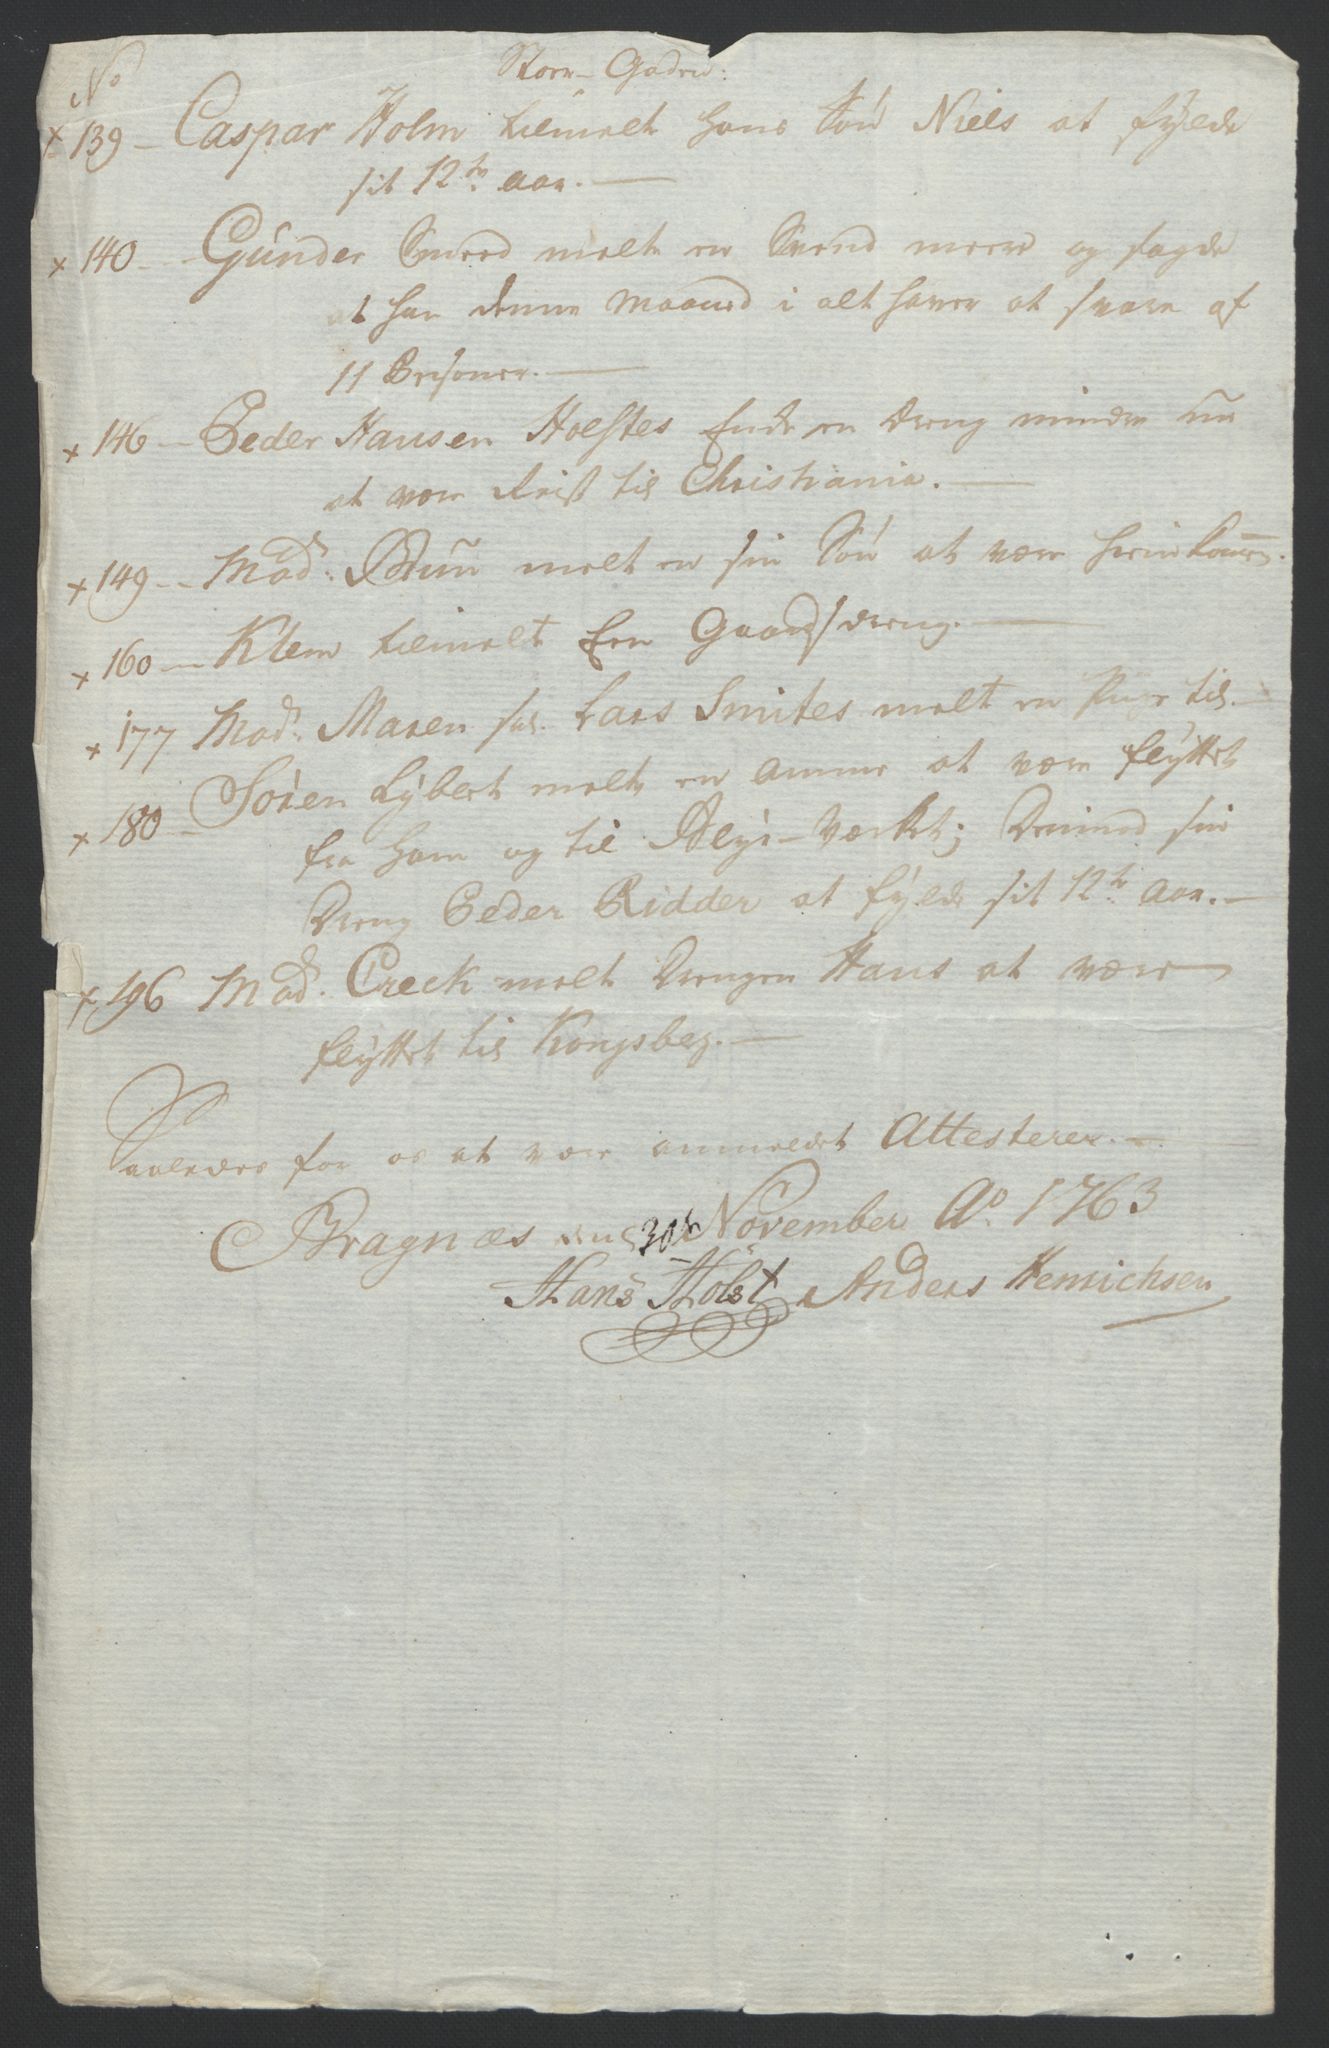 No
Stor-Gaden:
x 139 – Caspar Holm tilmelt hans Søn Niels at fylde
sit 12te Aar. —
x 140 – Gunder Smed melt en Svend meere og sagde
at han denne Maaned i alt haver at svare af
11 Personer. —
x 146 – Peder Hansen Holstes Enke en Dreng mindre
at være Reist til Christiania. —
x 149 – Mad. Bruu melt en sin Søn at være
x 160 – Klem tilmelt Een Gaardsdreng. —
x 177 Mad. Maren sal. Lars Smites melt en Pige til. —
x 180 – Søren Lybert melt en Amme at være flyttet
fra ham og til Blye-Værket; Derimod sin
Dreng Peder Ridder at fylde sit 12te Aar. —
x 196 Mad. Creck melt Drengen Hans at være
flyttet til Kongsberg. —
Saaledes for os at være anmeldet Attesterer. —
Bragnæs den 30te November Ao. 1763
Hans Holst Anders Henrichsen